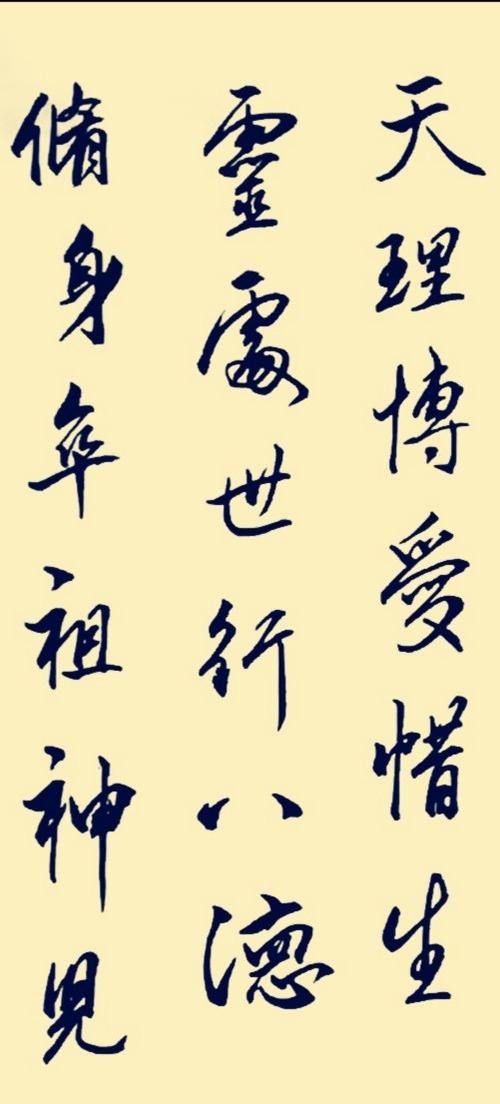 天理博愛惜生
靈處世行八德
脩身年祖神見